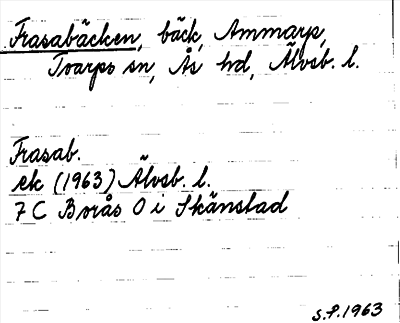 Frasabäcken, bäck, Ammarp,
Tvarps sn, Ås hd, Älvsb. l.
Frasab.
ek (1963) Älvsb. l.
7 C Borås O i Skänstad
S.P. 1963